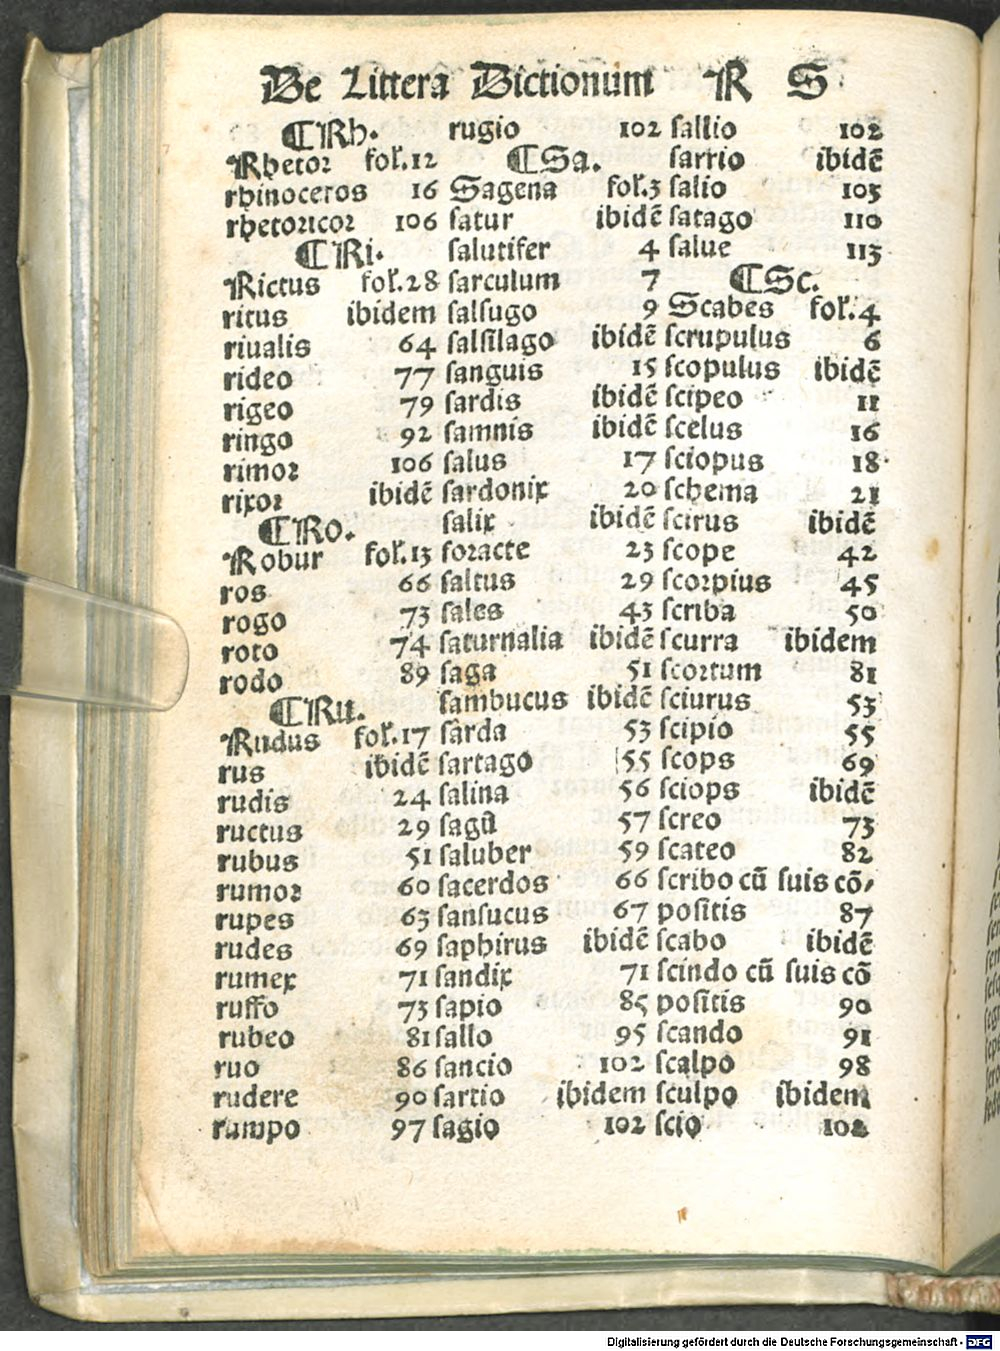 De Littera Dictionum R S
¶Rh.
Rhetor fol.12
rhinoceros 16
rhetoricor 106
¶Ri.
Rictus fol.28
ritus ibidem
riualis 64
rideo 77
rigeo 79
ringo 92
rimor 106
rixor ibidē
¶Ro.
Robur fol.13
ros 66
rogo 73
roto 74
rodo 89
¶Ru.
Rudus fol.17
rus ibidē
rudis 24
ructus 29
rubus 51
rumor 60
rupes 63
rudes 69
rumex 71
ruffo 73
rubeo 81
ruo 86
rudere 90
rumpo 97
rugio 102
¶Sa.
Sagena fol.3
satur ibidē
salutifer 4
sarculum 7
salsugo 9
salsilago ibidē
sanguis 15
sardis ibidē
samnis ibidē
salus 17
sardonix 20
salix ibidē
soracte 23
saltus 29
sales 43
saturnalia ibidē
saga 51
sambucus ibidē
sarda 53
sartago 55
salina 56
sagū 57
saluber 59
sacerdos 66
sansucus 67
saphirus ibidē
sandix 71
sapio 85
sallo 95
sancio 102
sartio ibidem
sagio 102
sallio 102
sarrio ibidē
salio 105
satago 110
salue 113
¶Sc.
Scabes fol.4
scrupulus 6
scopulus ibidē
scipeo 11
scelus 16
sciopus 18
schema 21
scirus ibidē
scope 42
scorpius 45
scriba 50
scurra ibidem
scortum 81
sciurus 53
scipio 55
scops 69
sciops ibidē
screo 73
scateo 82
scribo cū suis cō⸗
positis 87
scabo ibidē
scindo cū suis cō
positis 90
scando 91
scalpo 98
sculpo ibidem
scio 102
Digitalisierung gefördert durch die Deutsche Forschungsgemeinschaft - DFG